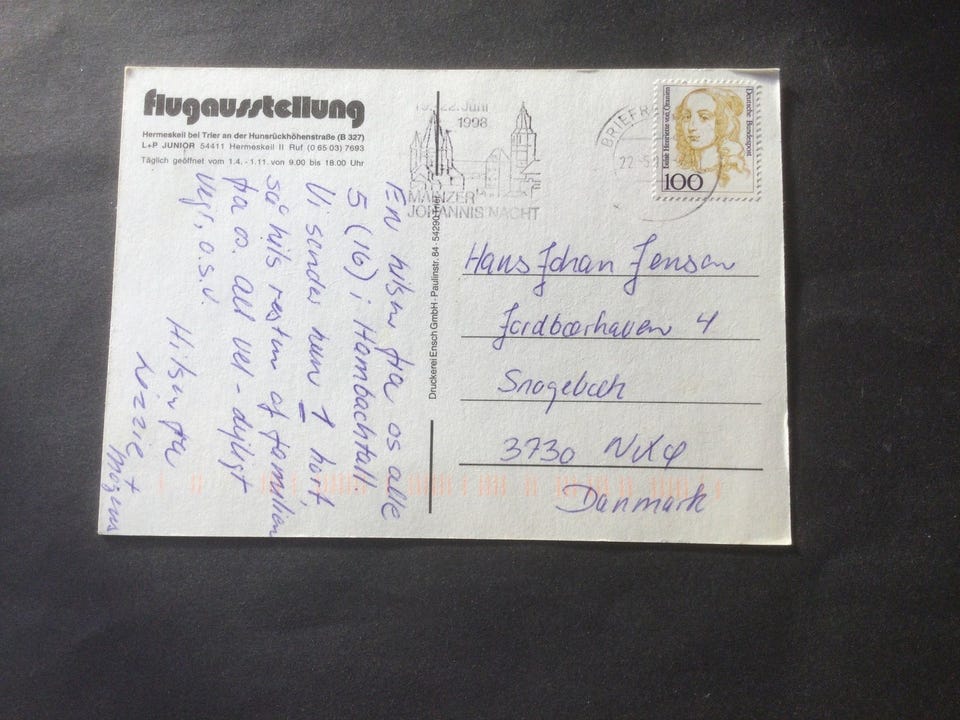 flugausstellung
Hermeskeil bei Trier an der Hunsrückhöhenstraße (B 327)
L+P JUNIOR 54411 Hermeskeil II Ruf (0 65 03) 7693
Täglich geöffnet vom 1.4. - 1.11. von 9.00 bis 18.00 Uhr
En hilsen fra os alle
5 (16) i Hambachtall.
Vi sender kun 1 kort,
så hils resten af familien
fra os. Alt vel - dejligt
vejr, o.s.v.
Hilsen fra
Lizzie
Mogens
Druckerei Ensch GmbH · Paulinstr. 84 · 54290 Trier
22. Juni
1998
MAINZER
JOHANNISNACHT
BRIEFR
22.-5
Luise Henriette von Oranien
Deutsche Bundespost
100
Hans Johan Jensen
Jordbærhaven 4
Snogebæk
3730 Nexø
Danmark